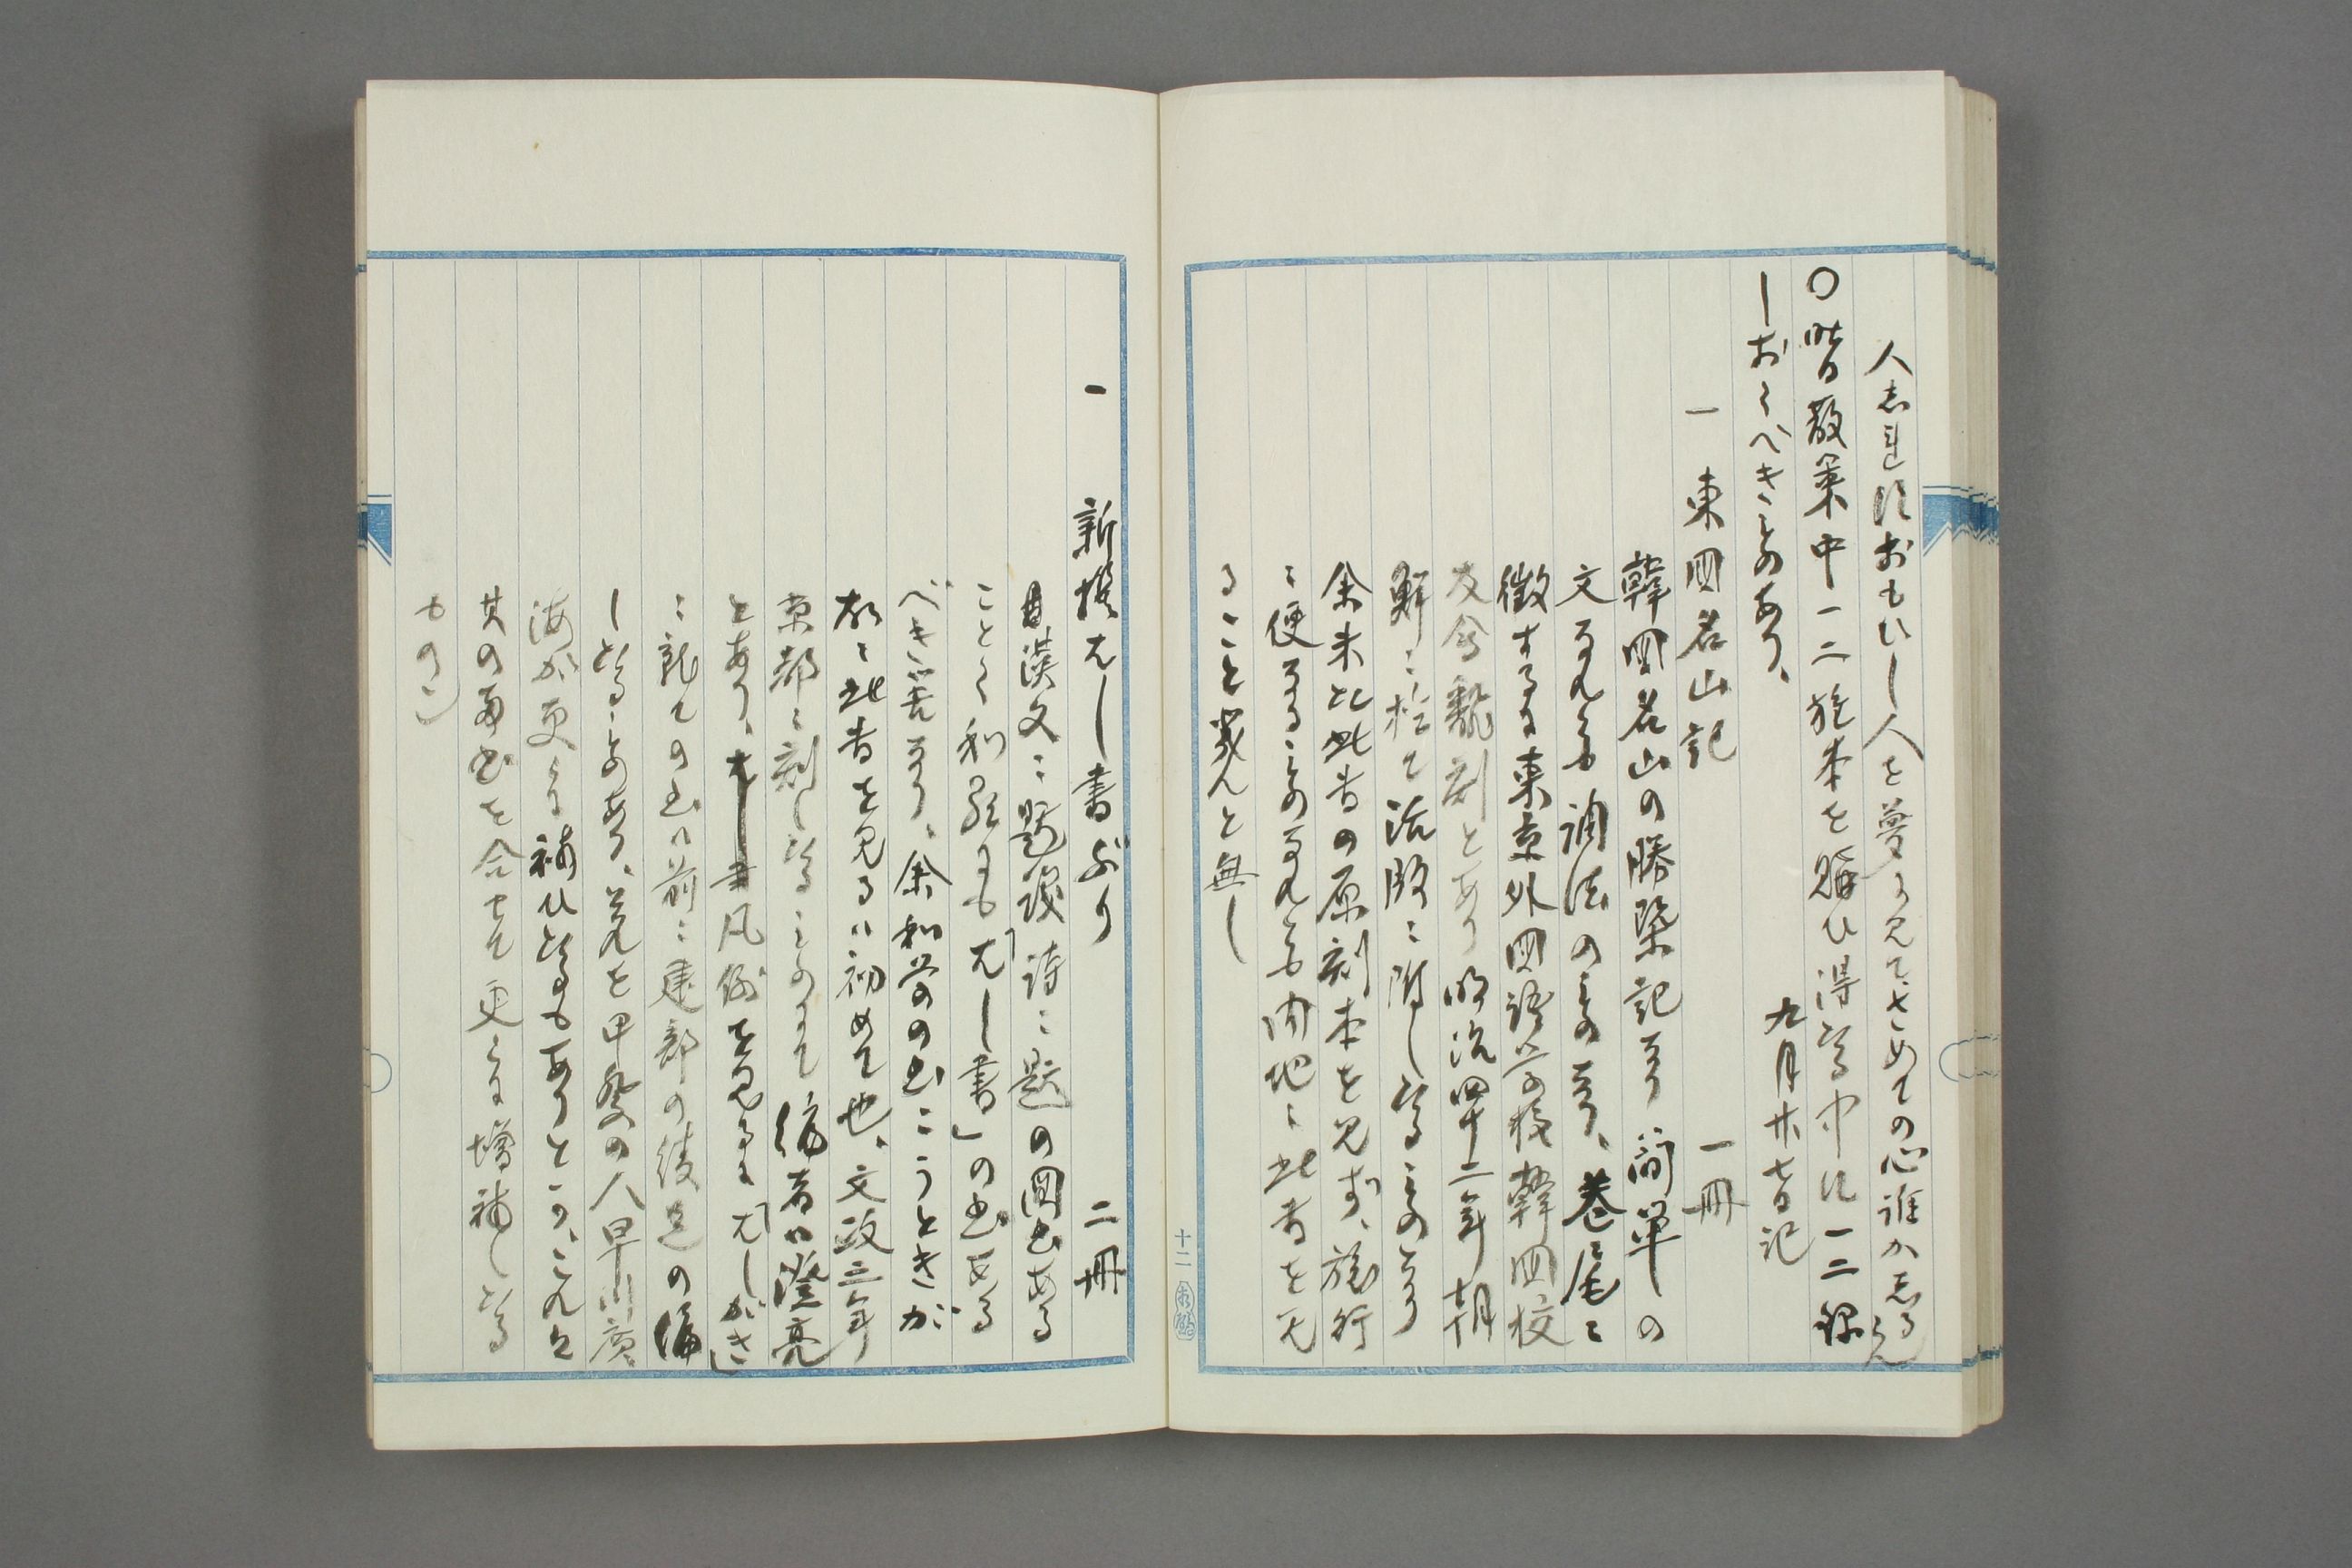 人志れ須おもひし人を夢に見てさめての心誰か志るらん
〇昨日散策中一二旅本を購ひ得たる中に一二録
しおくべきものあり、
九月廿七日記
一 東国名山記 一冊
韓国名山の勝槩記なり簡単の
文なれども調法のものなり、巻尾に
徴するに東京外国語学校韓国校
友会飜刻とあり明治四十二年朝
鮮に於て活版に附したるものなり
余未だ此書の原刻本を見ず、旅行
に便なるものなれども内地に此書を見
ること幾んど無し
十二
一 新撰はし書ぶり 二冊
漢文に題跋詩に題の図書ある
ごとく和歌にも「はし書」の書ある
べき筈なり、余和学の書にうときが
故に此書を見るは初めて也、文政三年
京都に刻したるものにて編者は澄亮
とあり、凡例を見るに「はしがき」
に就ての書は前に建部の綾足の編
したるものあり、それを甲斐の人早川廣
海が更に補ひたるもありとか、これは
其の両書を合せて更に増補したる
もの